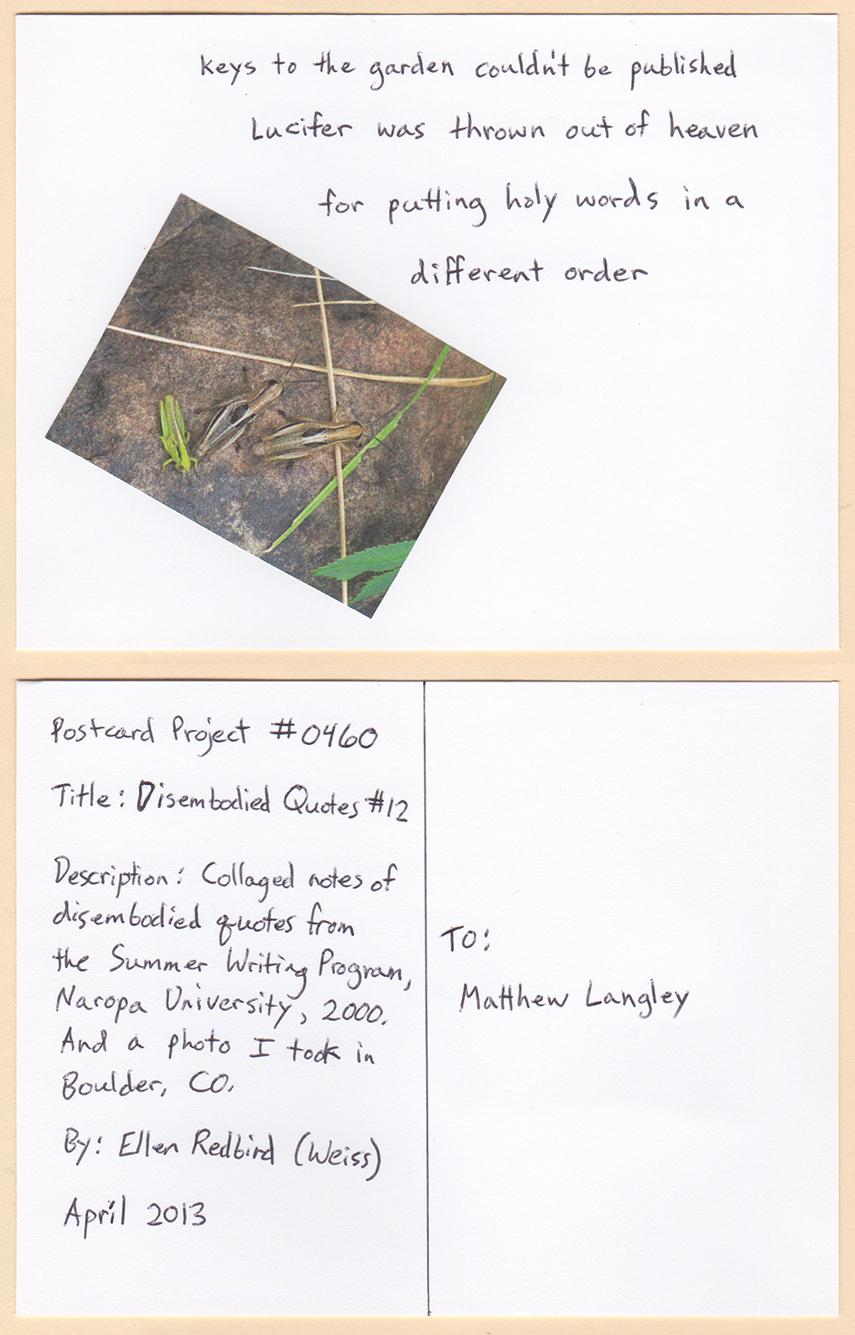 keys to the garden couldn't be published
Lucifer was thrown out of heaven
for putting holy words in a
different order
Postcard Project #0460
Title: Disembodied Quotes #12
Description: Collaged notes of
disembodied quotes from
the Summer Writing Program,
Naropa University, 2000.
And a photo I took in
Boulder, CO.
By: Ellen Redbird (Weiss)
April 2013
To:
Matthew Langley